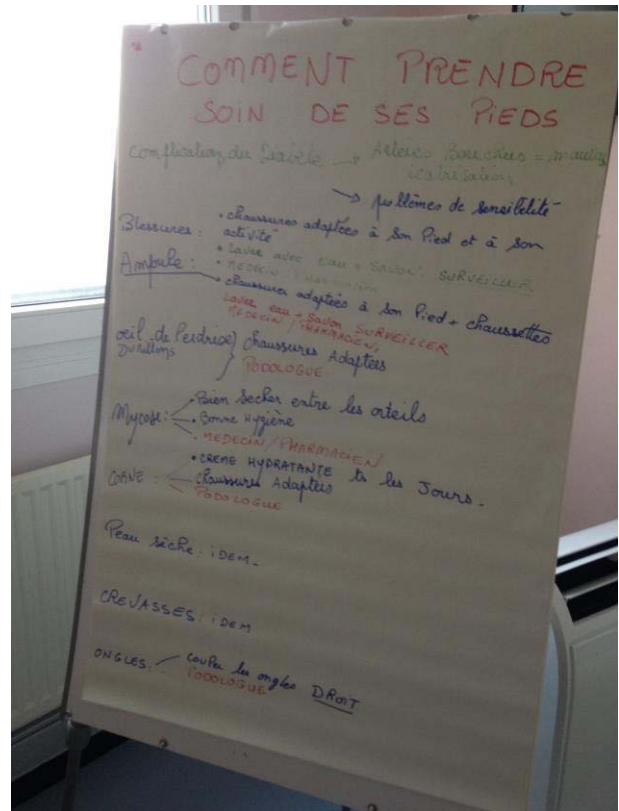 COMMENT PRENDRE
SOIN DE SES PIEDS
Complication du Diabète → Artères Bouchées = mauvaise
cicatrisation
→ problèmes de sensibilité
Blessures : • chaussures adaptées à son Pied et à son
activité
• Laver avec eau + savon. SURVEILLER
• MEDECIN
Ampoule : • chaussures adaptées à son Pied + chaussettes
Laver eau + Savon SURVEILLER
MEDECIN / PHARMACIEN
oeil de Perdrix } chaussures Adaptées
Durillons PODOLOGUE
• Bien sécher entre les orteils
Mycose : • Bonne Hygiène
• MEDECIN / PHARMACIEN
• CREME HYDRATANTE ts les Jours.
CORNE : chaussures Adaptées
PODOLOGUE
Peau sèche : iDEM.
CREVASSES : iDEM
ONGLES : couper les ongles DROIT
PODOLOGUE